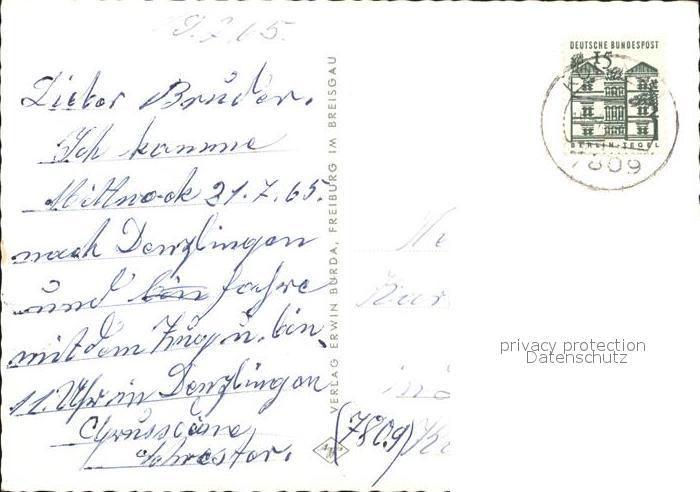 9.7.65.
Lieber Bruder.
Ich komme
Mittwock 21.7.65.
nach Denzlingen
und bin fahre
mit dem Zug u. bin
11. Uhr in Denzlingen
Gruss deine
Schwester.
VERLAG ERWIN BURDA, FREIBURG IM BREISGAU
DEUTSCHE BUNDESPOST
15
BERLIN-TEGEL
7809
He
(7809)
privacy protection
Datenschutz